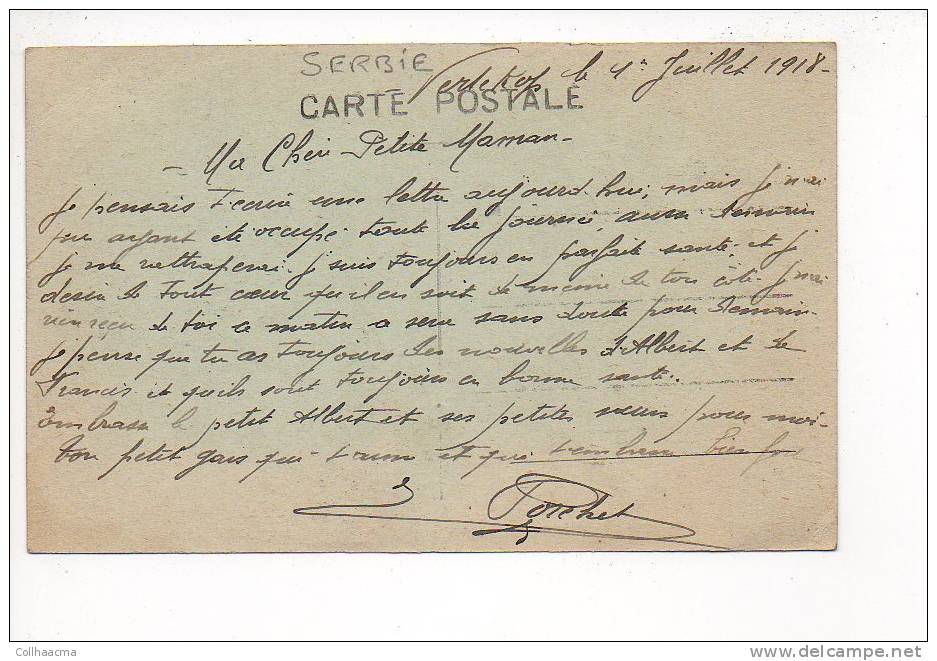 SERBIE
Vertekop le 4 Juillet 1918-
CARTE POSTALE
- Ma Chère Petite Maman -
je pensais t'ecrire une lettre aujourd'hui, mais j'n'ai
pu ayant été occupé toute la journée, aussi demain
je me rattraperai. je suis toujours en parfaite santé, et je
désire de tout cœur qu'il en soit de même de ton côté. j'n'ai
rien reçu de toi ce matin ce sera sans doute pour demain-
je pense que tu as toujours des nouvelles d'Albert et de
Francis et qu'ils sont toujours en bonne santé.
Embrasse le petit Albert et ses petites sœurs pour moi-
ton petit gars qui t'aime et qui t'embrasse bien fort
Porchet
Collhaacma
www.delcampe.net